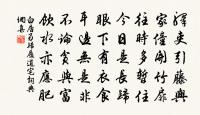 驛吏引藤輿
家僮開竹扉
往時多暫住
今日是長歸
眼下有衣食
耳邊無是非
不論貧與富
飲水亦應肥
白居易歸履道宅詞典
網集